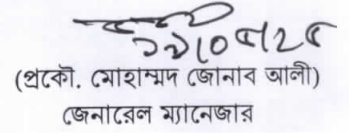 (প্রকৌ. মোহাম্মদ জোনাব আলী)
জেনারেল ম্যানেজার